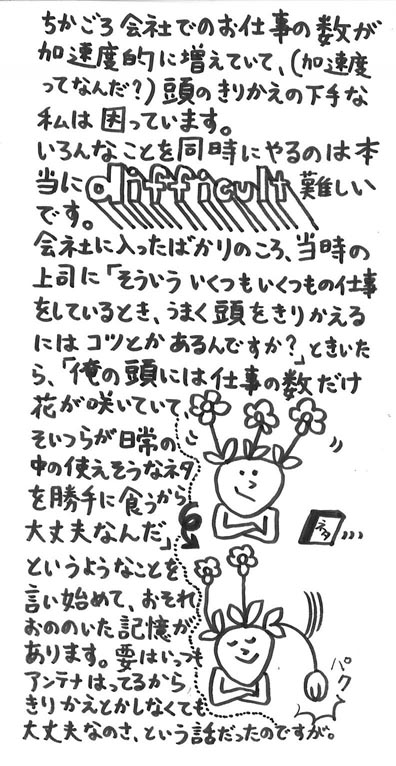 ちかごろ会社でのお仕事の数が
加速度的に増えていて、(加速度
ってなんだ?)頭のきりかえの下手な
私は困っています。
いろんなことを同時にやるのは本
当にdifficult難しい
です。
会社に入ったばかりのころ、当時の
上司に「そういういくつもいくつもの仕事
をしているとき、うまく頭をきりかえる
にはコツとかあるんですか?」ときいた
ら、「俺の頭には仕事の数だけ
花が咲いていて、
そいつらが日常の
中の使えそうなネタ
を勝手に食うから
大丈夫なんだ」
ネタ
というようなことを
言い始めて、おそれ
おののいた記憶が
あります。要はいつも
アンテナはってるから
きりかえとかしなくても
大丈夫なのさ、という話だったのですが。
パク